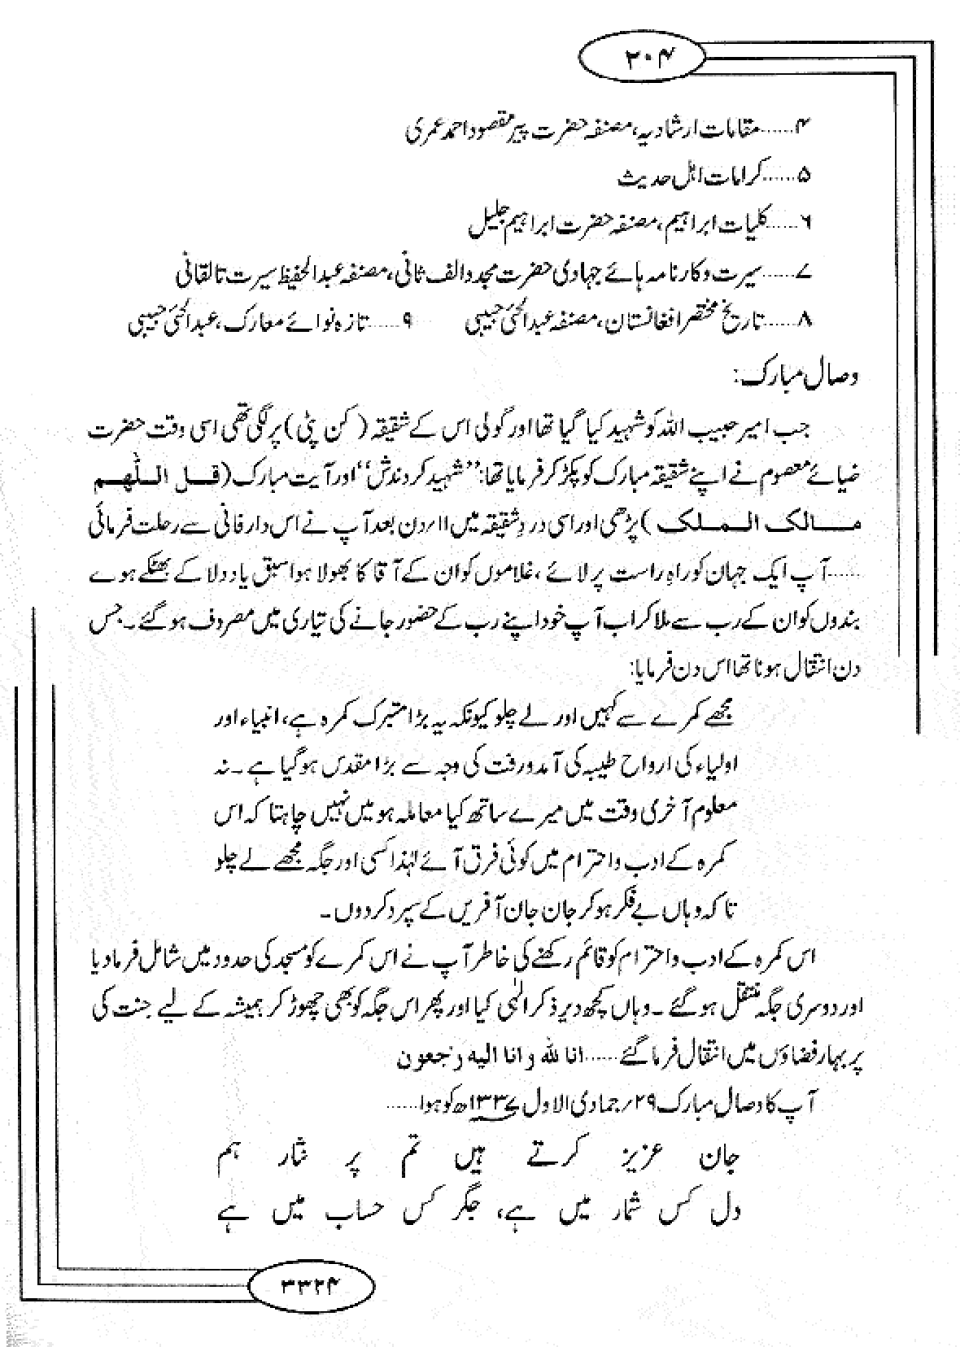 ۲۰۴
۴......مقامات ارشادیہ، مصنفہ حضرت پیر مقصود احمد عمری
۵......کرامات اہل حدیث
۶......کلیات ابراہیم، مصنفہ حضرت ابراہیم جلیل
۷......سیرت و کارنامہ ہائے جہادی حضرت مجدد الف ثانی، مصنفہ عبدالحفیظ سیرت تالقانی
۸......تاریخ مختصر افغانستان، مصنفہ عبدالحئ حبیبی ۹......تازہ نوائے معارک، عبدالحئ حبیبی
وصال مبارک:
جب امیر حبیب اللہ کو شہید کیا گیا تھا اور گولی اس کے شقیقہ (کن پٹی) پر لگی تھی اسی وقت حضرت
ضیائے معصوم نے اپنے شقیقہ مبارک کو پکڑ کر فرمایا تھا: ’’شہید کردندش‘‘ اور آیت مبارک (قل اللّٰھم
مالک الملک) پڑھی اور اسی دردِ شقیقہ میں ۱۱؍دن بعد آپ نے اس دار فانی سے رحلت فرمائی
......آپ ایک جہان کو راہِ راست پر لائے، غلاموں کو ان کے آقا کا بھولا ہوا سبق یاد دلا کے بھٹکے ہوے
بندوں کو ان کے رب سے ملا کر اب آپ خود اپنے رب کے حضور جانے کی تیاری میں مصروف ہو گئے۔ جس
دن انتقال ہونا تھا اس دن فرمایا:
مجھے کمرے سے کہیں اور لے چلو کیونکہ یہ بڑا متبرک کمرہ ہے، انبیاء اور
اولیاء کی ارواح طیبہ کی آمد ورفت کی وجہ سے بڑا مقدس ہو گیا ہے۔ نہ
معلوم آخری وقت میں میرے ساتھ کیا معاملہ ہو میں نہیں چاہتا کہ اس
کمرہ کے ادب و احترام میں کوئی فرق آئے لہٰذا کسی اور جگہ مجھے لے چلو
تاکہ وہاں بے فکر ہو کر جان جان آفریں کے سپرد کر دوں۔
اس کمرہ کے ادب و احترام کو قائم رکھنے کی خاطر آپ نے اس کمرے کو مسجد کی حدود میں شامل فرما دیا
اور دوسری جگہ منتقل ہو گئے۔ وہاں کچھ دیر ذکر الٰہی کیا اور پھر اس جگہ کو بھی چھوڑ کر ہمیشہ کے لیے جنت کی
پر بہار فضاؤں میں انتقال فرما گئے......انا للہ و انا الیہ رٰجعون
آپ کا وصال مبارک ۲۹؍جمادی الاول ۱۳۳۷ھ کو ہوا......
جان عزیز کرتے ہیں تم پر نثار ہم
دل کس شمار میں ہے، جگر کس حساب میں ہے
۳۳۲۴